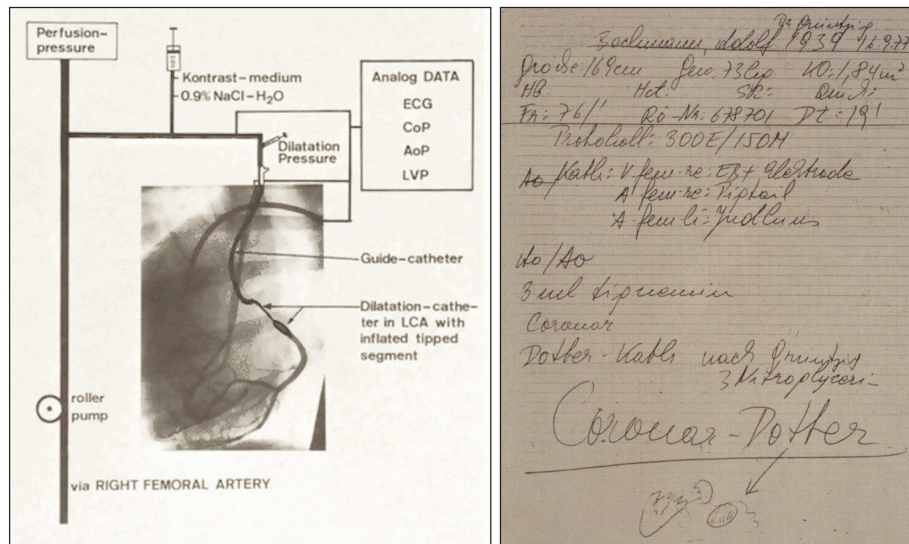 Perfusion-
pressure
Kontrast-medium
0.9% NaCl-H₂O
Dilatation
Pressure
Analog DATA
ECG
CoP
AoP
LVP
Guide-catheter
Dilatation-cathe-
ter in LCA with
inflated tipped
segment
roller
pump
via RIGHT FEMORAL ARTERY
Dr Grüntzig
Bachmann, Adolf 1939 16.9.77
Grösse: 169cm Gew. 73kp KO: 1,84m²
HB: Hct:
Fr: 76/' Rö-Nr: 678701 Dt: 19!
Protokoll: 300E/150H
Ao Kath: V fem re: EB + Elektrode
A fem re: Pigtail
A fem li: Judkins
Ao/Ao
3ml
Coronar
Dotter-Kath nach Grüntzig
3 Nitroglyceri-
Coronar-Dotter